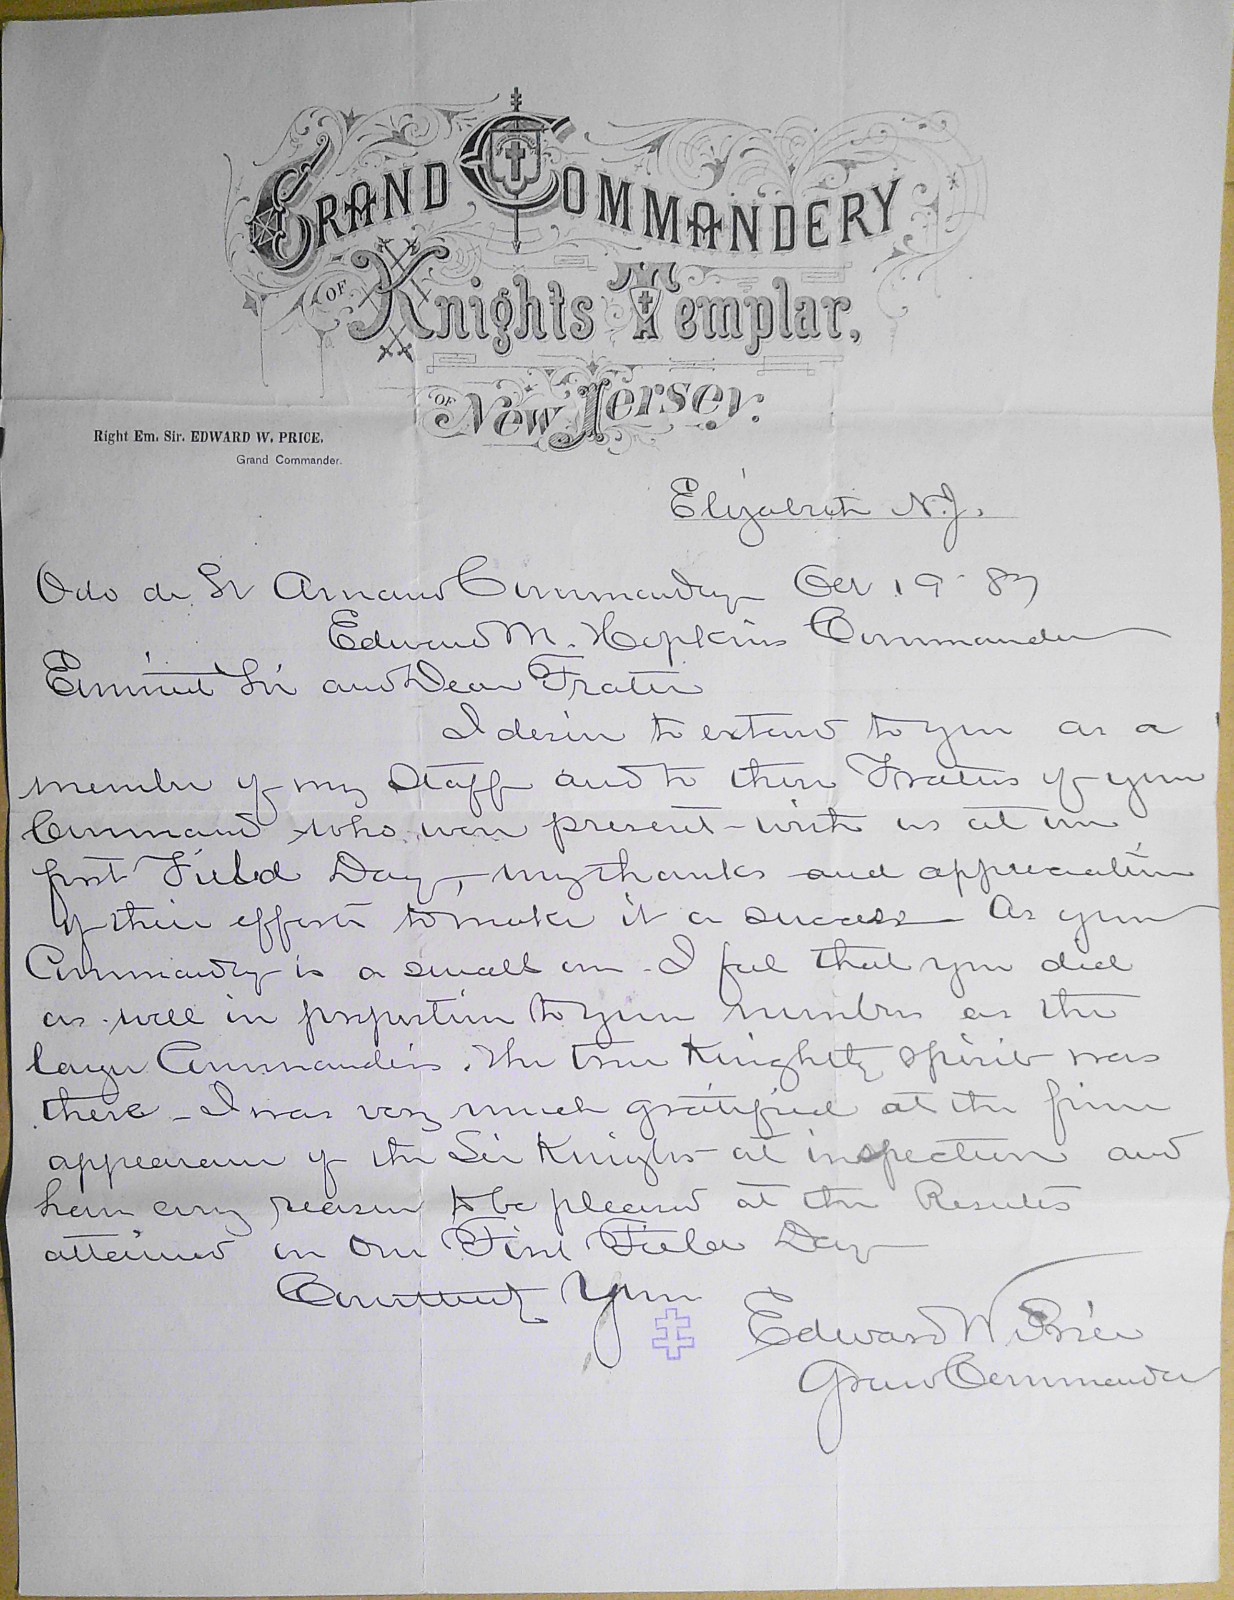 GRAND COMMANDERY
OF Knights Templar,
OF New Jersey.
Right Em. Sir. EDWARD W. PRICE,
Grand Commander.
Elizabeth N.J.
Odo de St Amand Commandery Oct 19 87
Edward M. Hopkins Commander
Eminent Sir and Dear Frater
I desire to extend to you as a
member of my Staff and to those Fraters of your
Command who were present with us at our
first Field Day, my thanks and appreciation
of their efforts to make it a success As your
Commandery is a small one I feel that you did
as well in proportion to your numbers as the
larger Commanderies. The true Knightly spirit was
there I was very much gratified at the fine
appearance of the Sir Knights at inspection and
have every reason to be pleased at the Results
attained in our First Field Day
Courteously Yours
Edward W. Price
Grand Commander